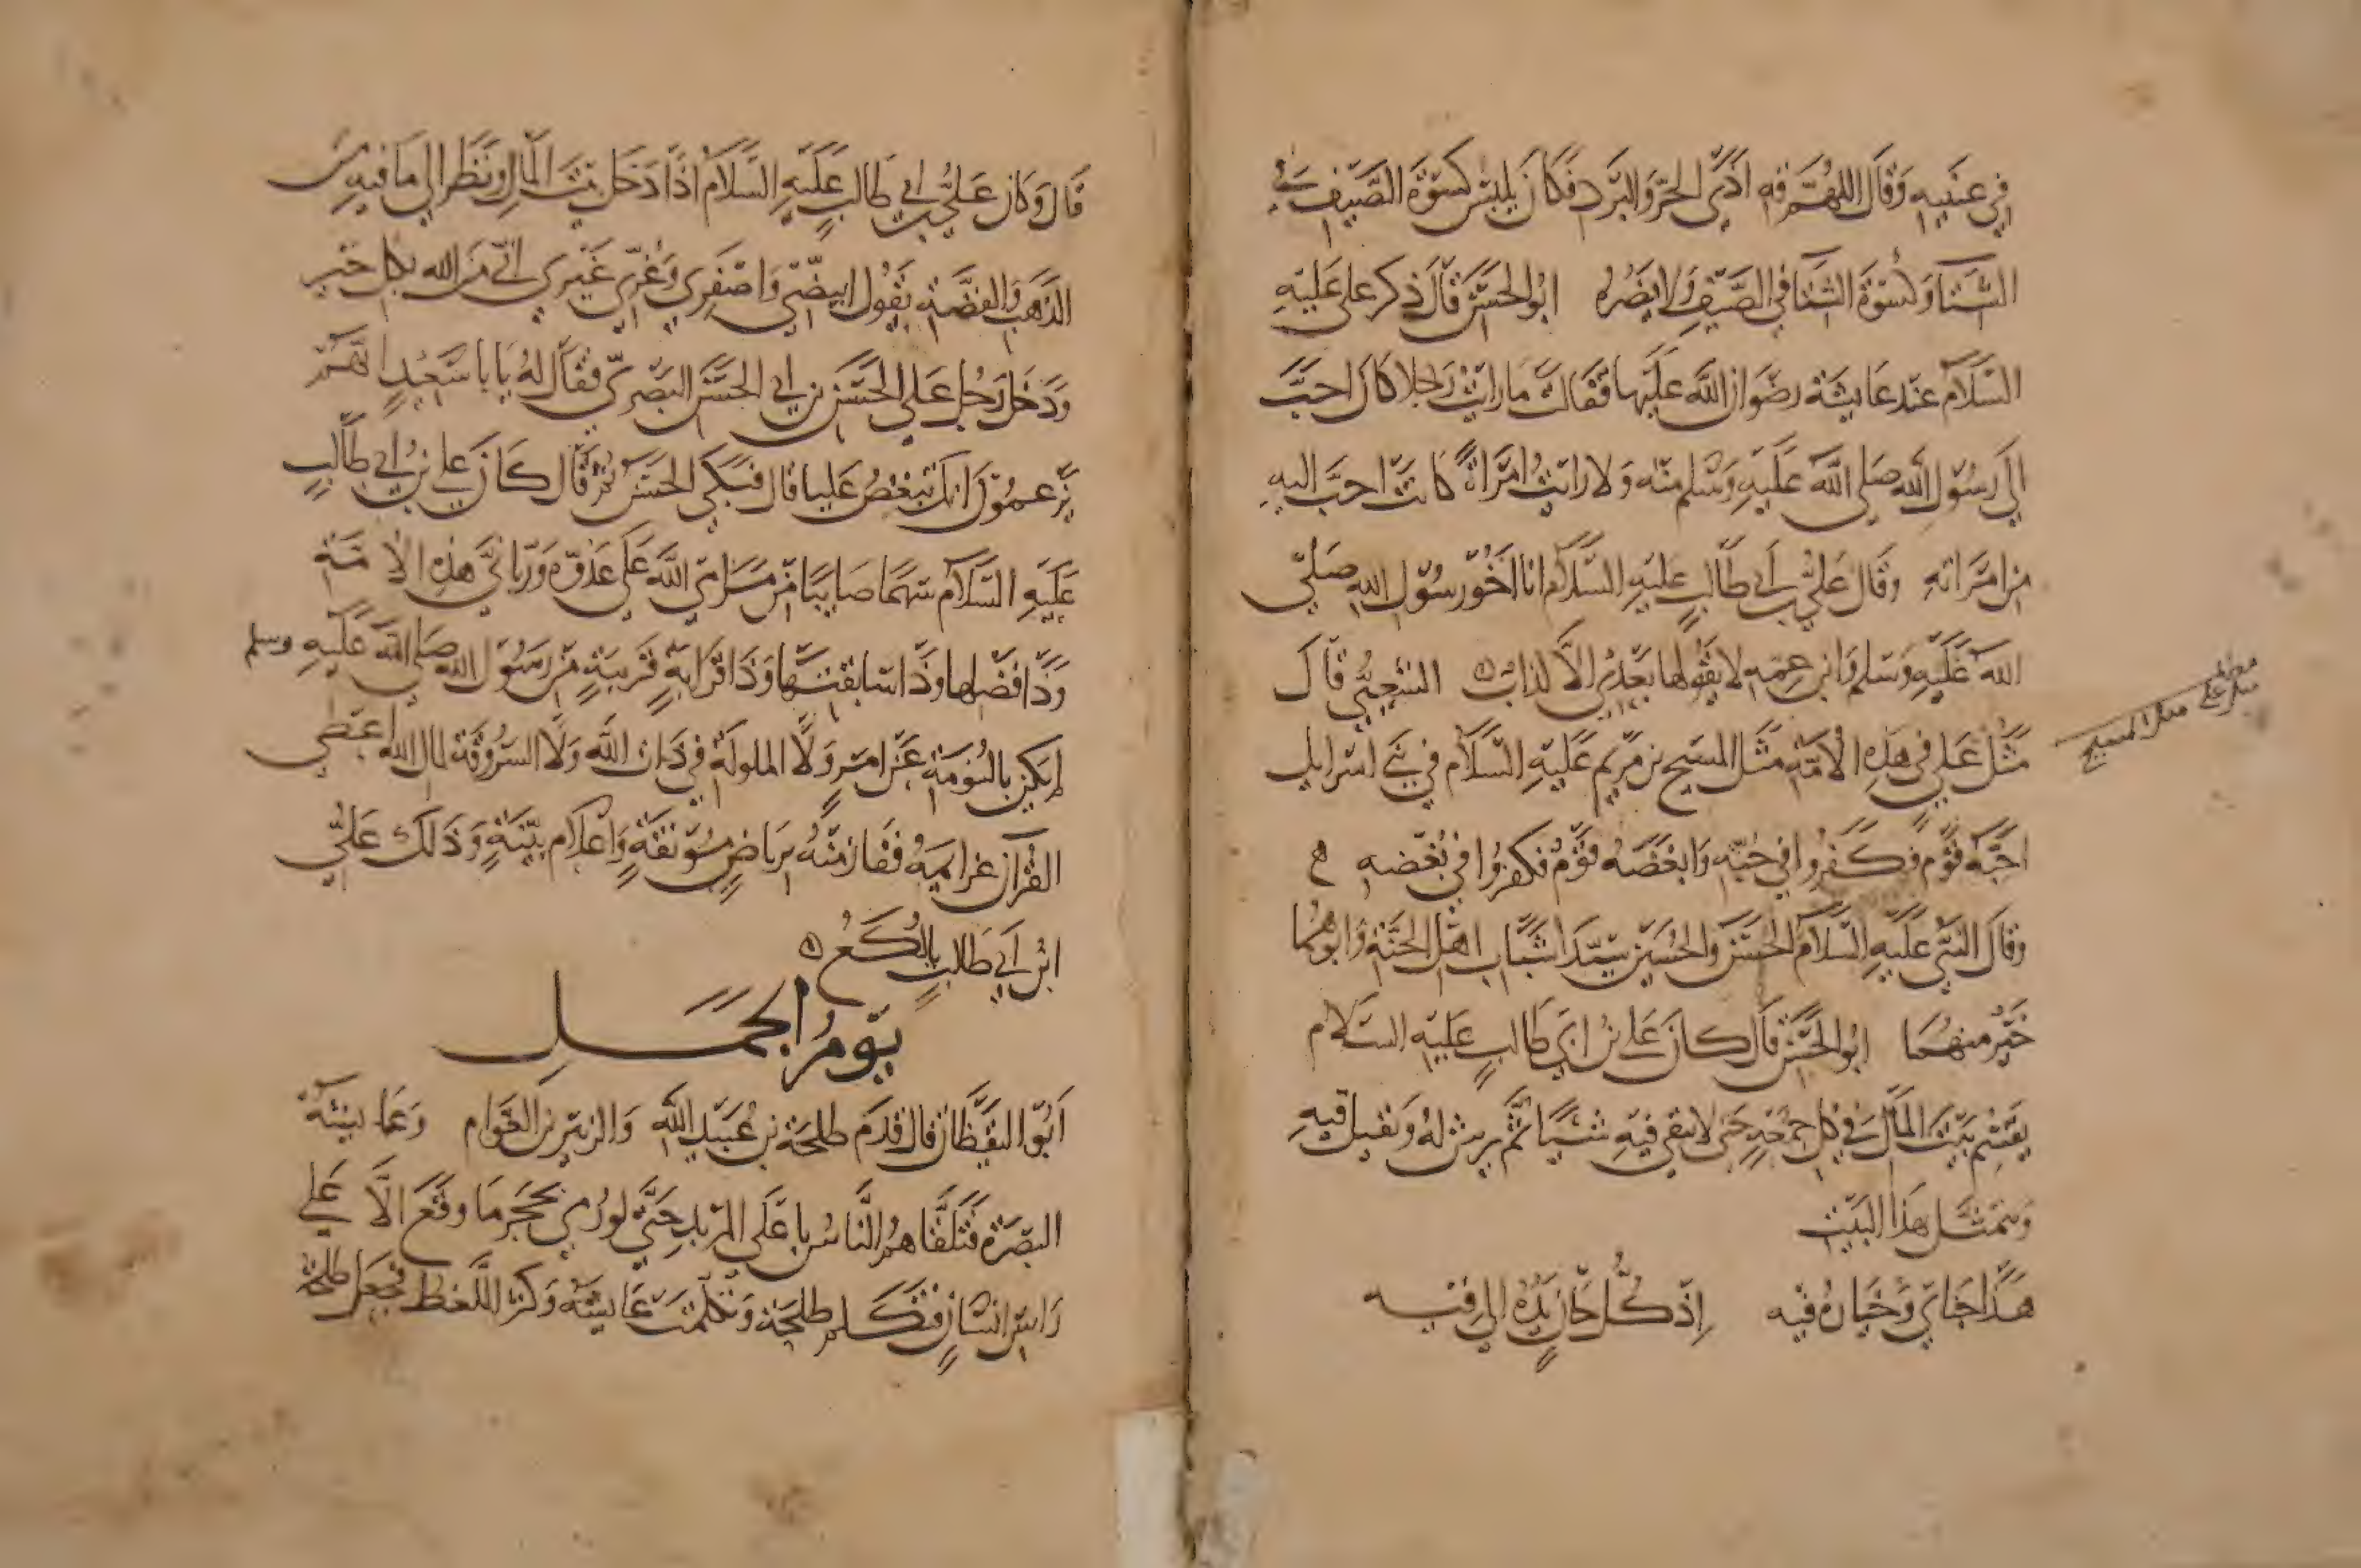 في عينيه وقال اللهم قه اذى الحر والبرد فكان يلبس كسوة الصيف في
الشتا وكسوة الشتا في الصيف ولا يضره ابو الحسن قال ذكر على عليه
السلام عند عايشة رضوان الله عليها فقالت ما رايت رجلا كان احب
الى رسول الله صلى الله عليه وسلم منه ولا رايت امراة كانت احب اليه
من امراته وقال علي بن ابي طالب عليه السلام انا اخو رسول الله صلى
الله عليه وسلم وابن عمه لا يقولها بعدي الا كذاب الشعبي قال
مثل علي في هذه الامة مثل المسيح بن مريم عليه السلام في بني اسرايل
احبه قوم فكفروا في حبه وابغضه قوم فكفروا في بغضه
وقال النبي عليه السلام الحسن والحسين سيدا شباب اهل الجنة وابوهما
خير منهما ابو الحسن قال كان علي بن ابي طالب عليه السلام
يقسم بيت المال في كل جمعة حتى لا يبقى فيه شيا ثم يرش له ويقيل فيه
ويتمثل هذا البيت
هذا جناي وخياره فيه اذ كل جان يده الى فيه
مثل على مثل المسيح
قال وكان علي بن ابي طالب عليه السلام اذا دخل بيت المال ونظر الى ما فيه من
الذهب والفضة يقول ابيضي واصفري وغري غيري اني من الله بكل خير
ودخل رجل على الحسن بن ابي الحسن البصري فقال له يا با سعيد انهم
يزعمون انك تبغض عليا قال فبكى الحسن ثم قال كان علي بن ابي طالب
عليه السلام سهما صايبا من مرامي الله على عدوه ورباني هذه الامة
وذا فضلها وذا سابقتها وذا قرابة قريبة من رسول الله صلى الله عليه وسلم
لم يكن بالنومة عن امر ولا الملولة في ذات الله ولا السروقة لمال الله اعطى
القرآن عزايمه ففاز منه برياض مونقة واعلام بينة وذلك علي
ابن ابي طالب يا لكع
يوم الجمل
ابو اليقظان قال قدم طلحة بن عبيد الله والزبير بن العوام وعايشة
البصرة فتلقاهم الناس باعلى المربد حتى لو رمي بحجر ما وقع الا على
راس انسان فتكلم طلحة وتكلمت عايشة وكثر اللغط فجعل طلحة